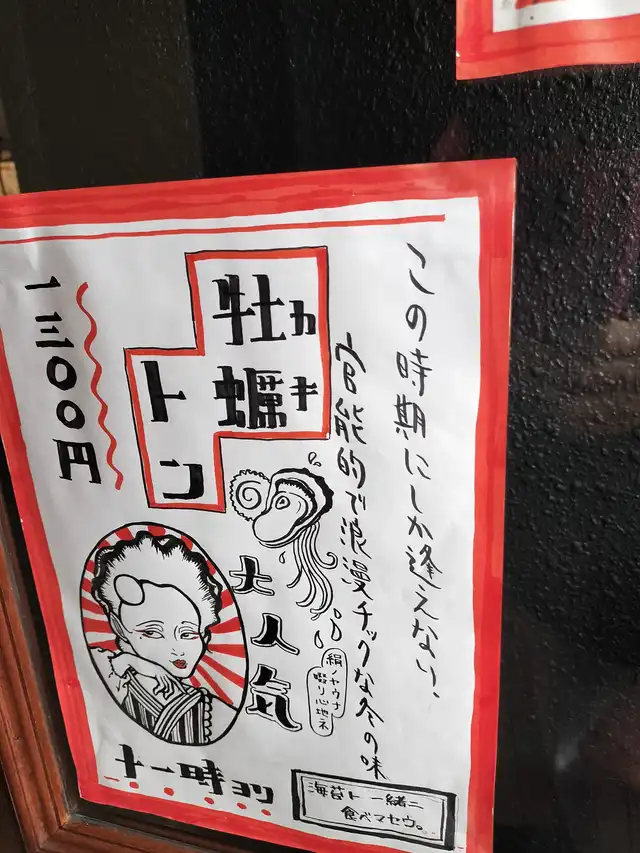 この時期にしか逢えない、
官能的で浪漫チックな冬の味
牡蠣
カキ
トン
一三〇〇円
大人気
絹ノヤウナ
啜り心地ネ
十一時ヨリ
海苔ト一緒ニ
食ベマセウ。